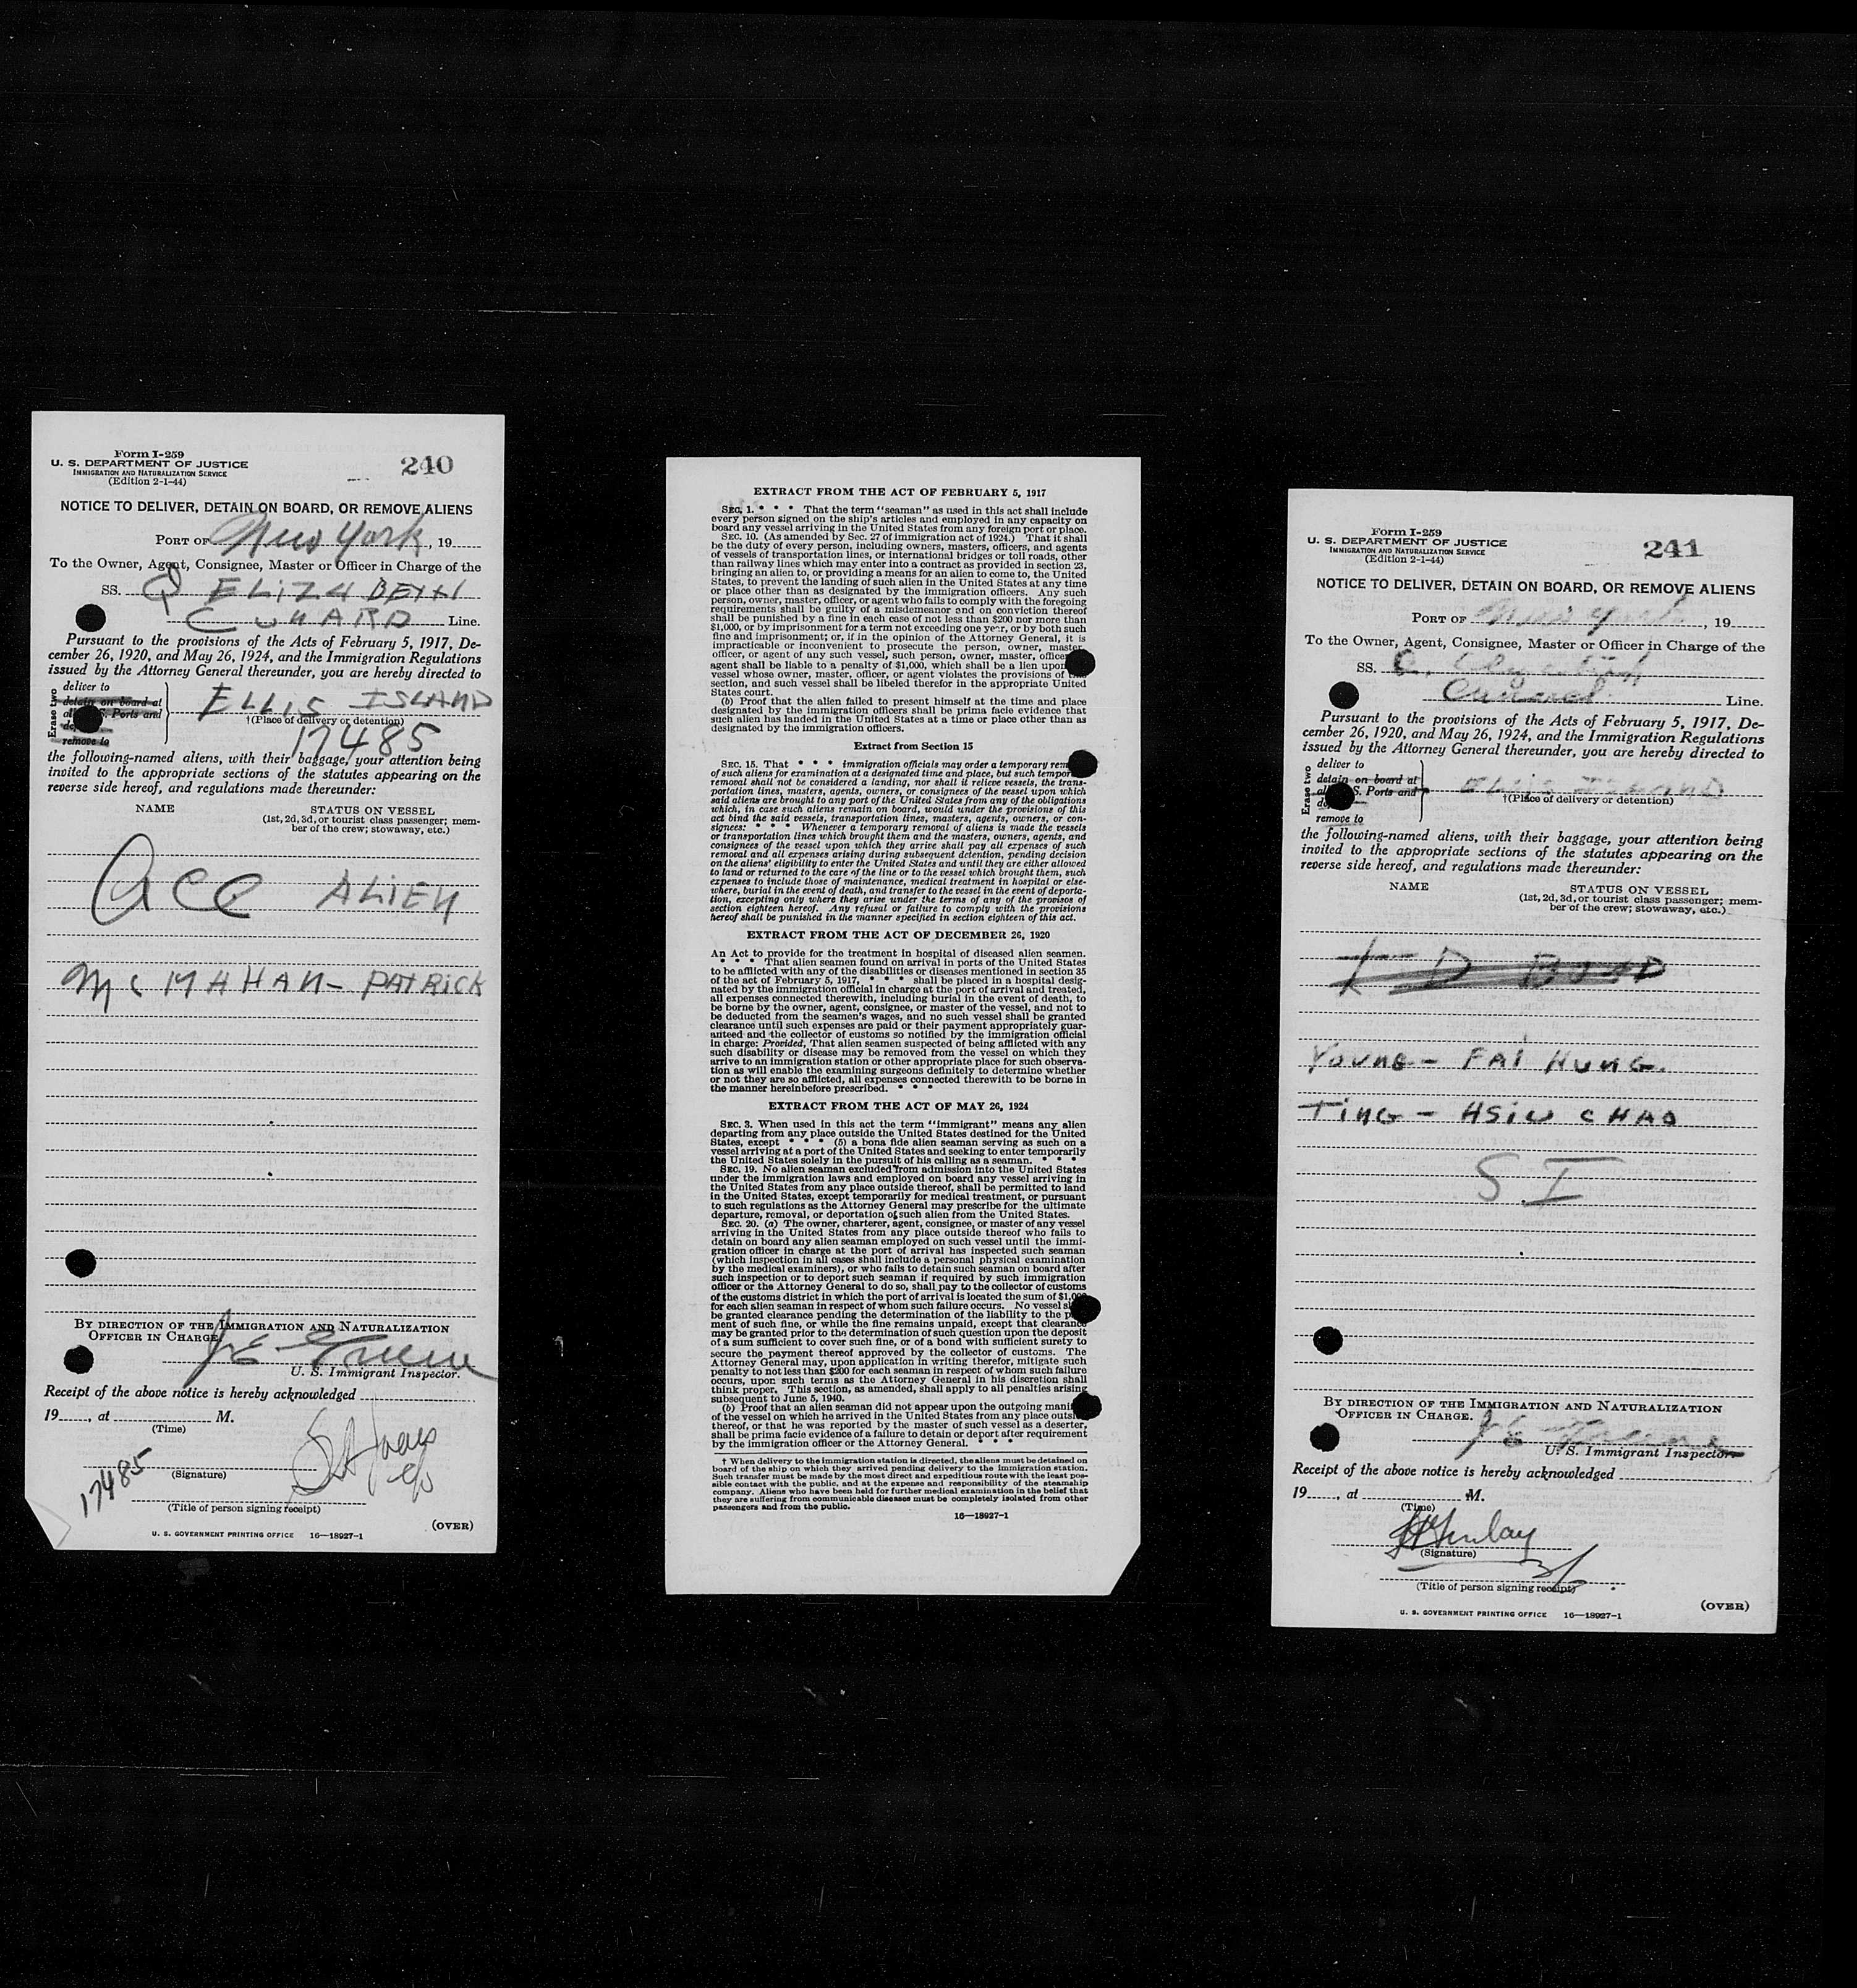 Form I-259
U. S. DEPARTMENT OF JUSTICE
IMMIGRATION AND NATURALIZATION SERVICE
(Edition 2-1-44)
240
NOTICE TO DELIVER, DETAIN ON BOARD, OR REMOVE ALIENS
PORT OF New York, 19
To the Owner, Agent, Consignee, Master or Officer in Charge of the
SS. Q ELIZABETH
CUNARD Line.
Pursuant to the provisions of the Acts of February 5, 1917, De-
cember 26, 1920, and May 26, 1924, and the Immigration Regulations
issued by the Attorney General thereunder, you are hereby directed to
Erase two
deliver to
detain on board at
S. Ports and
remove to
ELLIS ISLAND
†(Place of delivery or detention)
17485
the following-named aliens, with their baggage, your attention being
invited to the appropriate sections of the statutes appearing on the
reverse side hereof, and regulations made thereunder:
NAME STATUS ON VESSEL
(1st, 2d, 3d, or tourist class passenger; mem-
ber of the crew; stowaway, etc.)
Acc ALIEN
McMAHAN - PATRICK
BY DIRECTION OF THE IMMIGRATION AND NATURALIZATION
OFFICER IN CHARGE.
U. S. Immigrant Inspector.
Receipt of the above notice is hereby acknowledged
19, at M.
(Time)
17485
(Signature)
(Title of person signing receipt)
U. S. GOVERNMENT PRINTING OFFICE 16—18927-1
(OVER)
EXTRACT FROM THE ACT OF FEBRUARY 5, 1917
SEC. 1. * * * That the term "seaman" as used in this act shall include
every person signed on the ship's articles and employed in any capacity on
board any vessel arriving in the United States from any foreign port or place.
SEC. 10. (As amended by Sec. 27 of immigration act of 1924.) That it shall
be the duty of every person, including owners, masters, officers, and agents
of vessels of transportation lines, or international bridges or toll roads, other
than railway lines which may enter into a contract as provided in section 23,
bringing an alien to, or providing a means for an alien to come to, the United
States, to prevent the landing of such alien in the United States at any time
or place other than as designated by the immigration officers. Any such
person, owner, master, officer, or agent who fails to comply with the foregoing
requirements shall be guilty of a misdemeanor and on conviction thereof
shall be punished by a fine in each case of not less than $200 nor more than
$1,000, or by imprisonment for a term not exceeding one year, or by both such
fine and imprisonment; or, if in the opinion of the Attorney General, it is
impracticable or inconvenient to prosecute the person, owner, master,
officer, or agent of any such vessel, such person, owner, master, officer
agent shall be liable to a penalty of $1,000, which shall be a lien upon
vessel whose owner, master, officer, or agent violates the provisions of
section, and such vessel shall be libeled therefor in the appropriate United
States court.
(b) Proof that the alien failed to present himself at the time and place
designated by the immigration officers shall be prima facie evidence that
such alien has landed in the United States at a time or place other than as
designated by the immigration officers.
Extract from Section 15
SEC. 15. That * * * immigration officials may order a temporary rem
of such aliens for examination at a designated time and place, but such tempor
removal shall not be considered a landing, nor shall it relieve vessels, the trans-
portation lines, masters, agents, owners, or consignees of the vessel upon which
said aliens are brought to any port of the United States from any of the obligations
which, in case such aliens remain on board, would under the provisions of this
act bind the said vessels, transportation lines, masters, agents, owners, or con-
signees: * * * Whenever a temporary removal of aliens is made the vessels
or transportation lines which brought them and the masters, owners, agents, and
consignees of the vessel upon which they arrive shall pay all expenses of such
removal and all expenses arising during subsequent detention, pending decision
on the aliens' eligibility to enter the United States and until they are either allowed
to land or returned to the care of the line or to the vessel which brought them, such
expenses to include those of maintenance, medical treatment in hospital or else-
where, burial in the event of death, and transfer to the vessel in the event of deporta-
tion, excepting only where they arise under the terms of any of the provisos of
section eighteen hereof. Any refusal or failure to comply with the provisions
hereof shall be punished in the manner specified in section eighteen of this act.
EXTRACT FROM THE ACT OF DECEMBER 26, 1920
An Act to provide for the treatment in hospital of diseased alien seamen.
* * * That alien seamen found on arrival in ports of the United States
to be afflicted with any of the disabilities or diseases mentioned in section 35
of the act of February 5, 1917, * * * shall be placed in a hospital desig-
nated by the immigration official in charge at the port of arrival and treated,
all expenses connected therewith, including burial in the event of death, to
be borne by the owner, agent, consignee, or master of the vessel, and not to
be deducted from the seamen's wages, and no such vessel shall be granted
clearance until such expenses are paid or their payment appropriately guar-
anteed and the collector of customs so notified by the immigration official
in charge: Provided, That alien seamen suspected of being afflicted with any
such disability or disease may be removed from the vessel on which they
arrive to an immigration station or other appropriate place for such observa-
tion as will enable the examining surgeons definitely to determine whether
or not they are so afflicted, all expenses connected therewith to be borne in
the manner hereinbefore prescribed. * * *
EXTRACT FROM THE ACT OF MAY 26, 1924
SEC. 3. When used in this act the term "immigrant" means any alien
departing from any place outside the United States destined for the United
States, except * * * (5) a bona fide alien seaman serving as such on a
vessel arriving at a port of the United States and seeking to enter temporarily
the United States solely in the pursuit of his calling as a seaman. * * *
SEC. 19. No alien seaman excluded from admission into the United States
under the immigration laws and employed on board any vessel arriving in
the United States from any place outside thereof, shall be permitted to land
in the United States, except temporarily for medical treatment, or pursuant
to such regulations as the Attorney General may prescribe for the ultimate
departure, removal, or deportation of such alien from the United States.
SEC. 20. (a) The owner, charterer, agent, consignee, or master of any vessel
arriving in the United States from any place outside thereof who fails to
detain on board any alien seaman employed on such vessel until the immi-
gration officer in charge at the port of arrival has inspected such seaman
(which inspection in all cases shall include a personal physical examination
by the medical examiners), or who fails to detain such seaman on board after
such inspection or to deport such seaman if required by such immigration
officer or the Attorney General to do so, shall pay to the collector of customs
of the customs district in which the port of arrival is located the sum of $1,000
for each alien seaman in respect of whom such failure occurs. No vessel s
be granted clearance pending the determination of the liability to the p
ment of such fine, or while the fine remains unpaid, except that clearance
may be granted prior to the determination of such question upon the deposit
of a sum sufficient to cover such fine, or of a bond with sufficient surety to
secure the payment thereof approved by the collector of customs. The
Attorney General may, upon application in writing therefor, mitigate such
penalty to not less than $200 for each seaman in respect of whom such failure
occurs, upon such terms as the Attorney General in his discretion shall
think proper. This section, as amended, shall apply to all penalties arising
subsequent to June 5, 1940.
(b) Proof that an alien seaman did not appear upon the outgoing mani
of the vessel on which he arrived in the United States from any place outsi
thereof, or that he was reported by the master of such vessel as a deserter,
shall be prima facie evidence of a failure to detain or deport after requirement
by the immigration officer or the Attorney General. * * *
† When delivery to the immigration station is directed, the aliens must be detained on
board of the ship on which they arrived pending delivery to the immigration station.
Such transfer must be made by the most direct and expeditious route with the least pos-
sible contact with the public, and at the expense and responsibility of the steamship
company. Aliens who have been held for further medical examination in the belief that
they are suffering from communicable diseases must be completely isolated from other
passengers and from the public.
16—18927-1
Form I-259
U. S. DEPARTMENT OF JUSTICE
IMMIGRATION AND NATURALIZATION SERVICE
(Edition 2-1-44)
241
NOTICE TO DELIVER, DETAIN ON BOARD, OR REMOVE ALIENS
PORT OF New York, 19
To the Owner, Agent, Consignee, Master or Officer in Charge of the
SS.
Cunard Line.
Pursuant to the provisions of the Acts of February 5, 1917, De-
cember 26, 1920, and May 26, 1924, and the Immigration Regulations
issued by the Attorney General thereunder, you are hereby directed to
Erase two
deliver to
detain on board at
S. Ports and
remove to
ELLIS ISLAND
†(Place of delivery or detention)
the following-named aliens, with their baggage, your attention being
invited to the appropriate sections of the statutes appearing on the
reverse side hereof, and regulations made thereunder:
NAME STATUS ON VESSEL
(1st, 2d, 3d, or tourist class passenger; mem-
ber of the crew; stowaway, etc.)
YOUNG - FAI HUNG.
TING - HSIU CHAO
S I
BY DIRECTION OF THE IMMIGRATION AND NATURALIZATION
OFFICER IN CHARGE.
U. S. Immigrant Inspector.
Receipt of the above notice is hereby acknowledged
19, at M.
(Time)
(Signature)
(Title of person signing receipt)
U. S. GOVERNMENT PRINTING OFFICE 16—18927-1
(OVER)